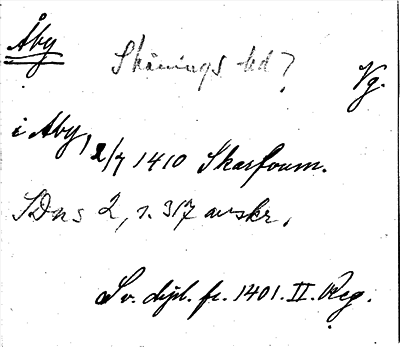 Åby
Skånings hd?
Vg.
i Aby, 2/7 1410 Skarfoum.
SDns 2, s. 317 avskr.
Sv. dipl. fr. 1401. II. Reg.